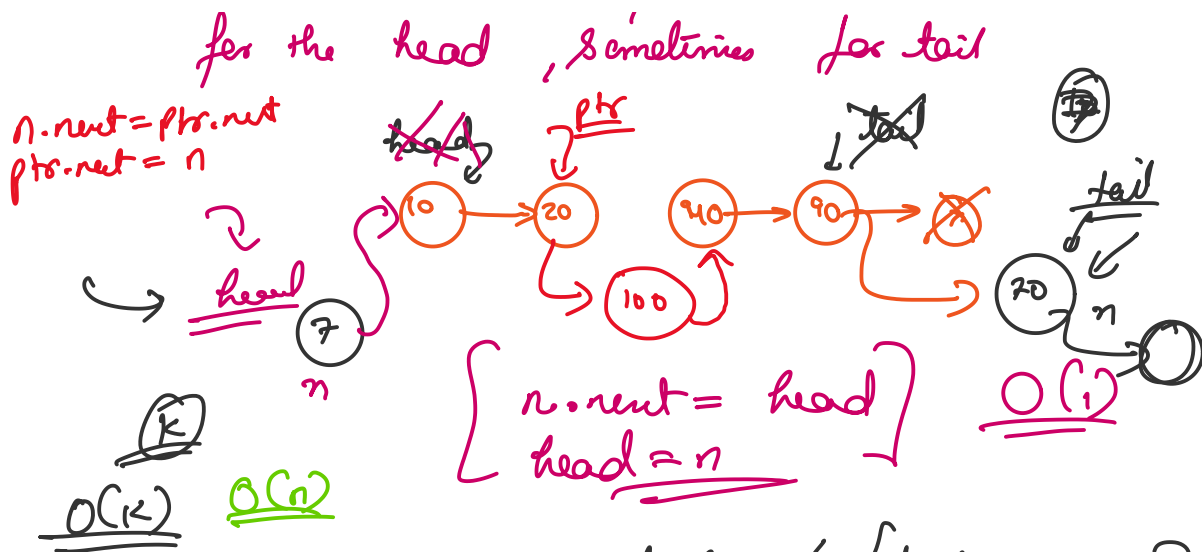 for the head , sometimes for tail
n.next = ptr.next
ptr.next = n
head
ptr
tail
tail
10
20
40
90
100
70
n
head
7
n
n.next = head
head = n
O(1)
K
O(K)
O(n)